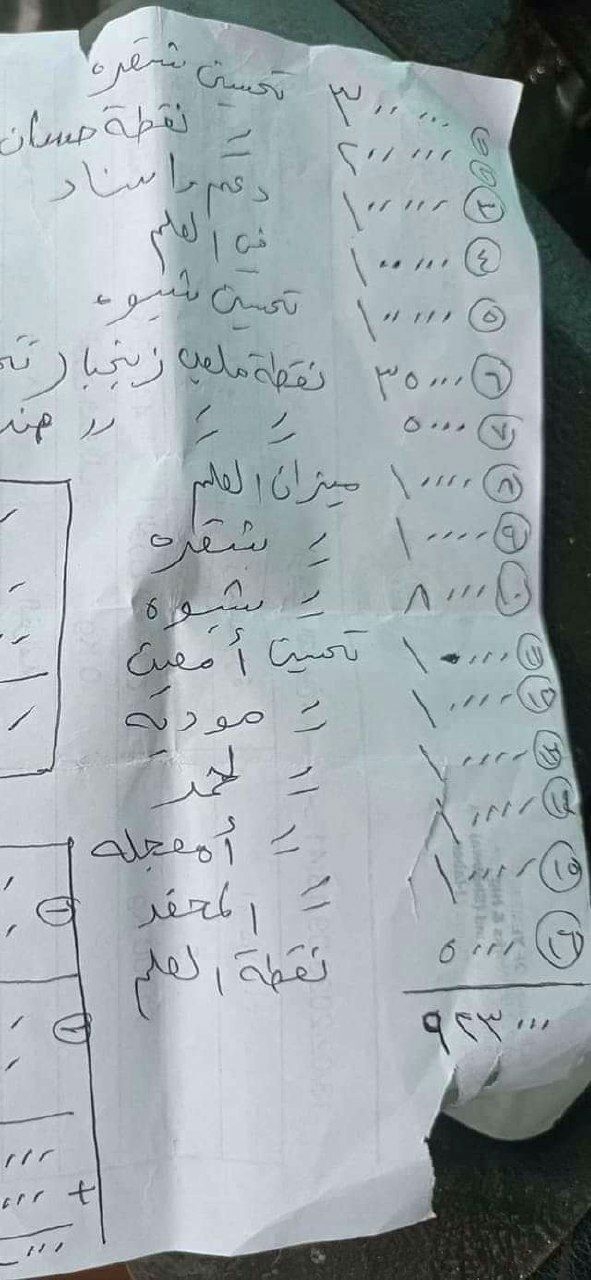 ① ٣٠٠٠٠٠ تحسين شقره
② ٢٠٠٠٠٠ // نقطة حسان
③ ١٠٠٠٠٠ دعم واسناد
④ ١٠٠٠٠٠ في العلم
⑤ ١٠٠٠٠٠ تحسين شيوه
⑥ ٣٥٠٠٠ نقطة ملعب زنجبار
⑦ ٥٠٠٠ // // //
⑧ ١٠٠٠٠ ميزان العلم
⑨ ١٠٠٠٠ // شقره
⑩ ٨٠٠٠ // شيوه
⑪ ١٠٠٠٠ تحسين أمعين
⑫ ١٠٠٠٠ // مودية
⑬ ١٠٠٠٠ // لحمر
⑭ ١٠٠٠٠ // أمعجله
⑮ ١٠٠٠٠ // المحفد
⑯ ٥٠٠٠ نقطة العلم
٩٢٣٠٠٠